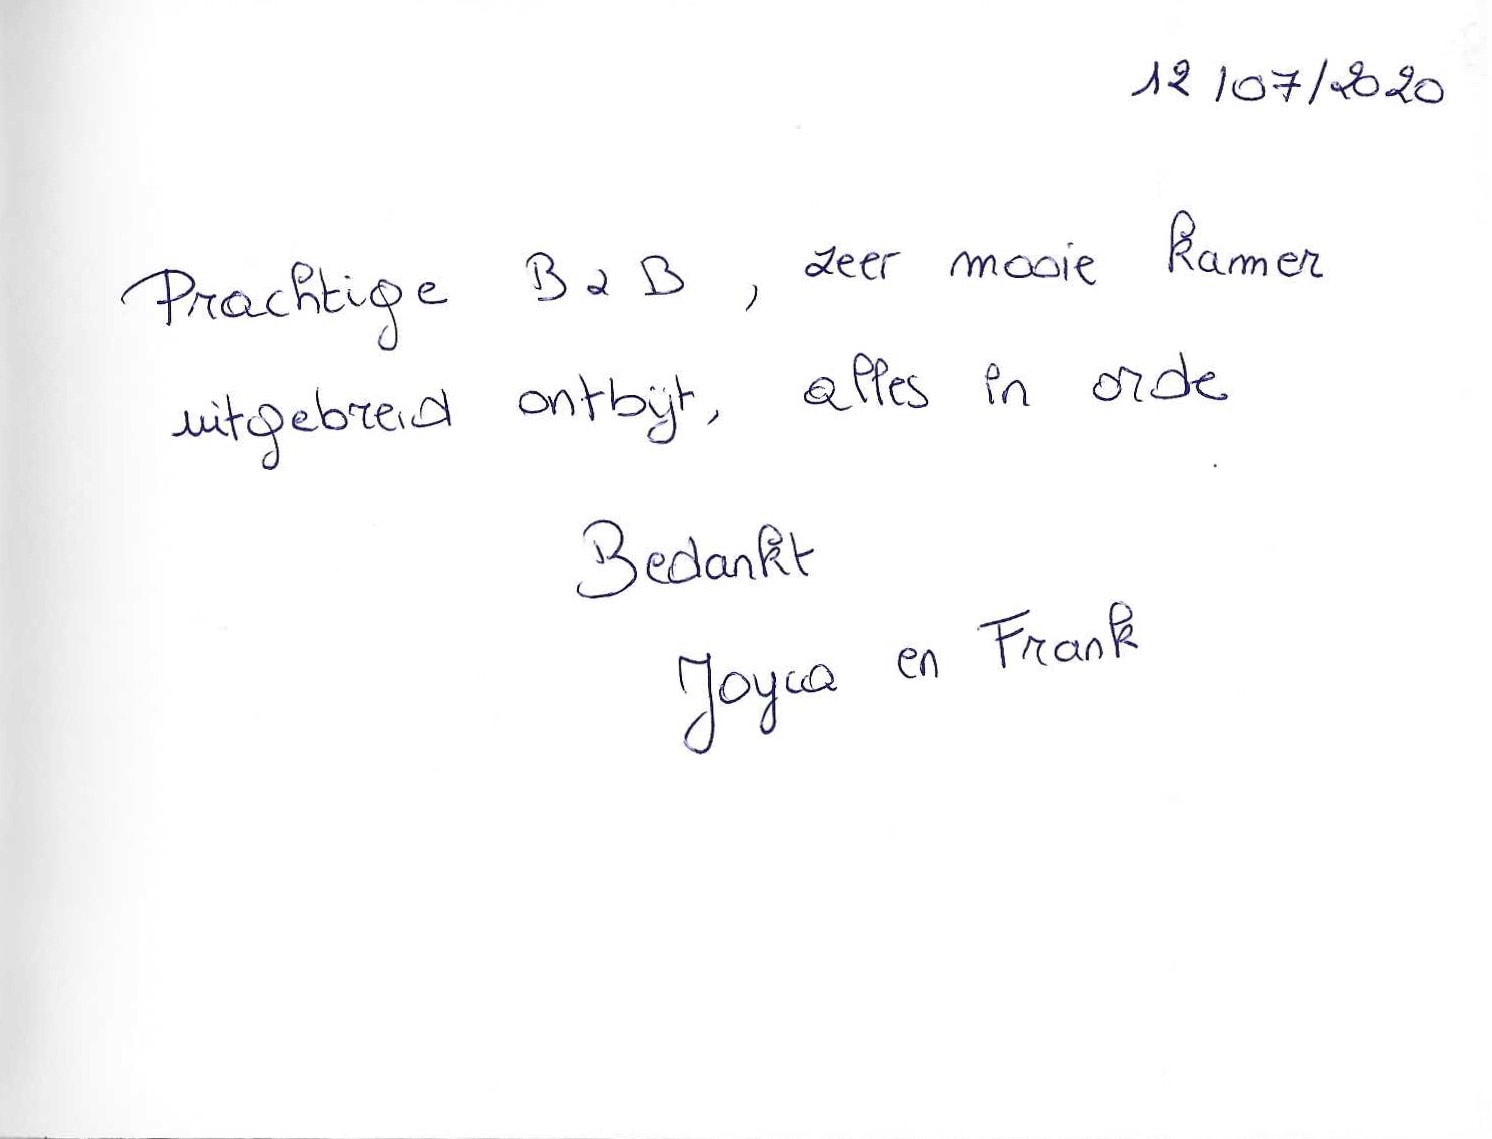 12/07/2020
Prachtige B & B, zeer mooie kamer
uitgebreid ontbijt, alles in orde
Bedankt
en Frank